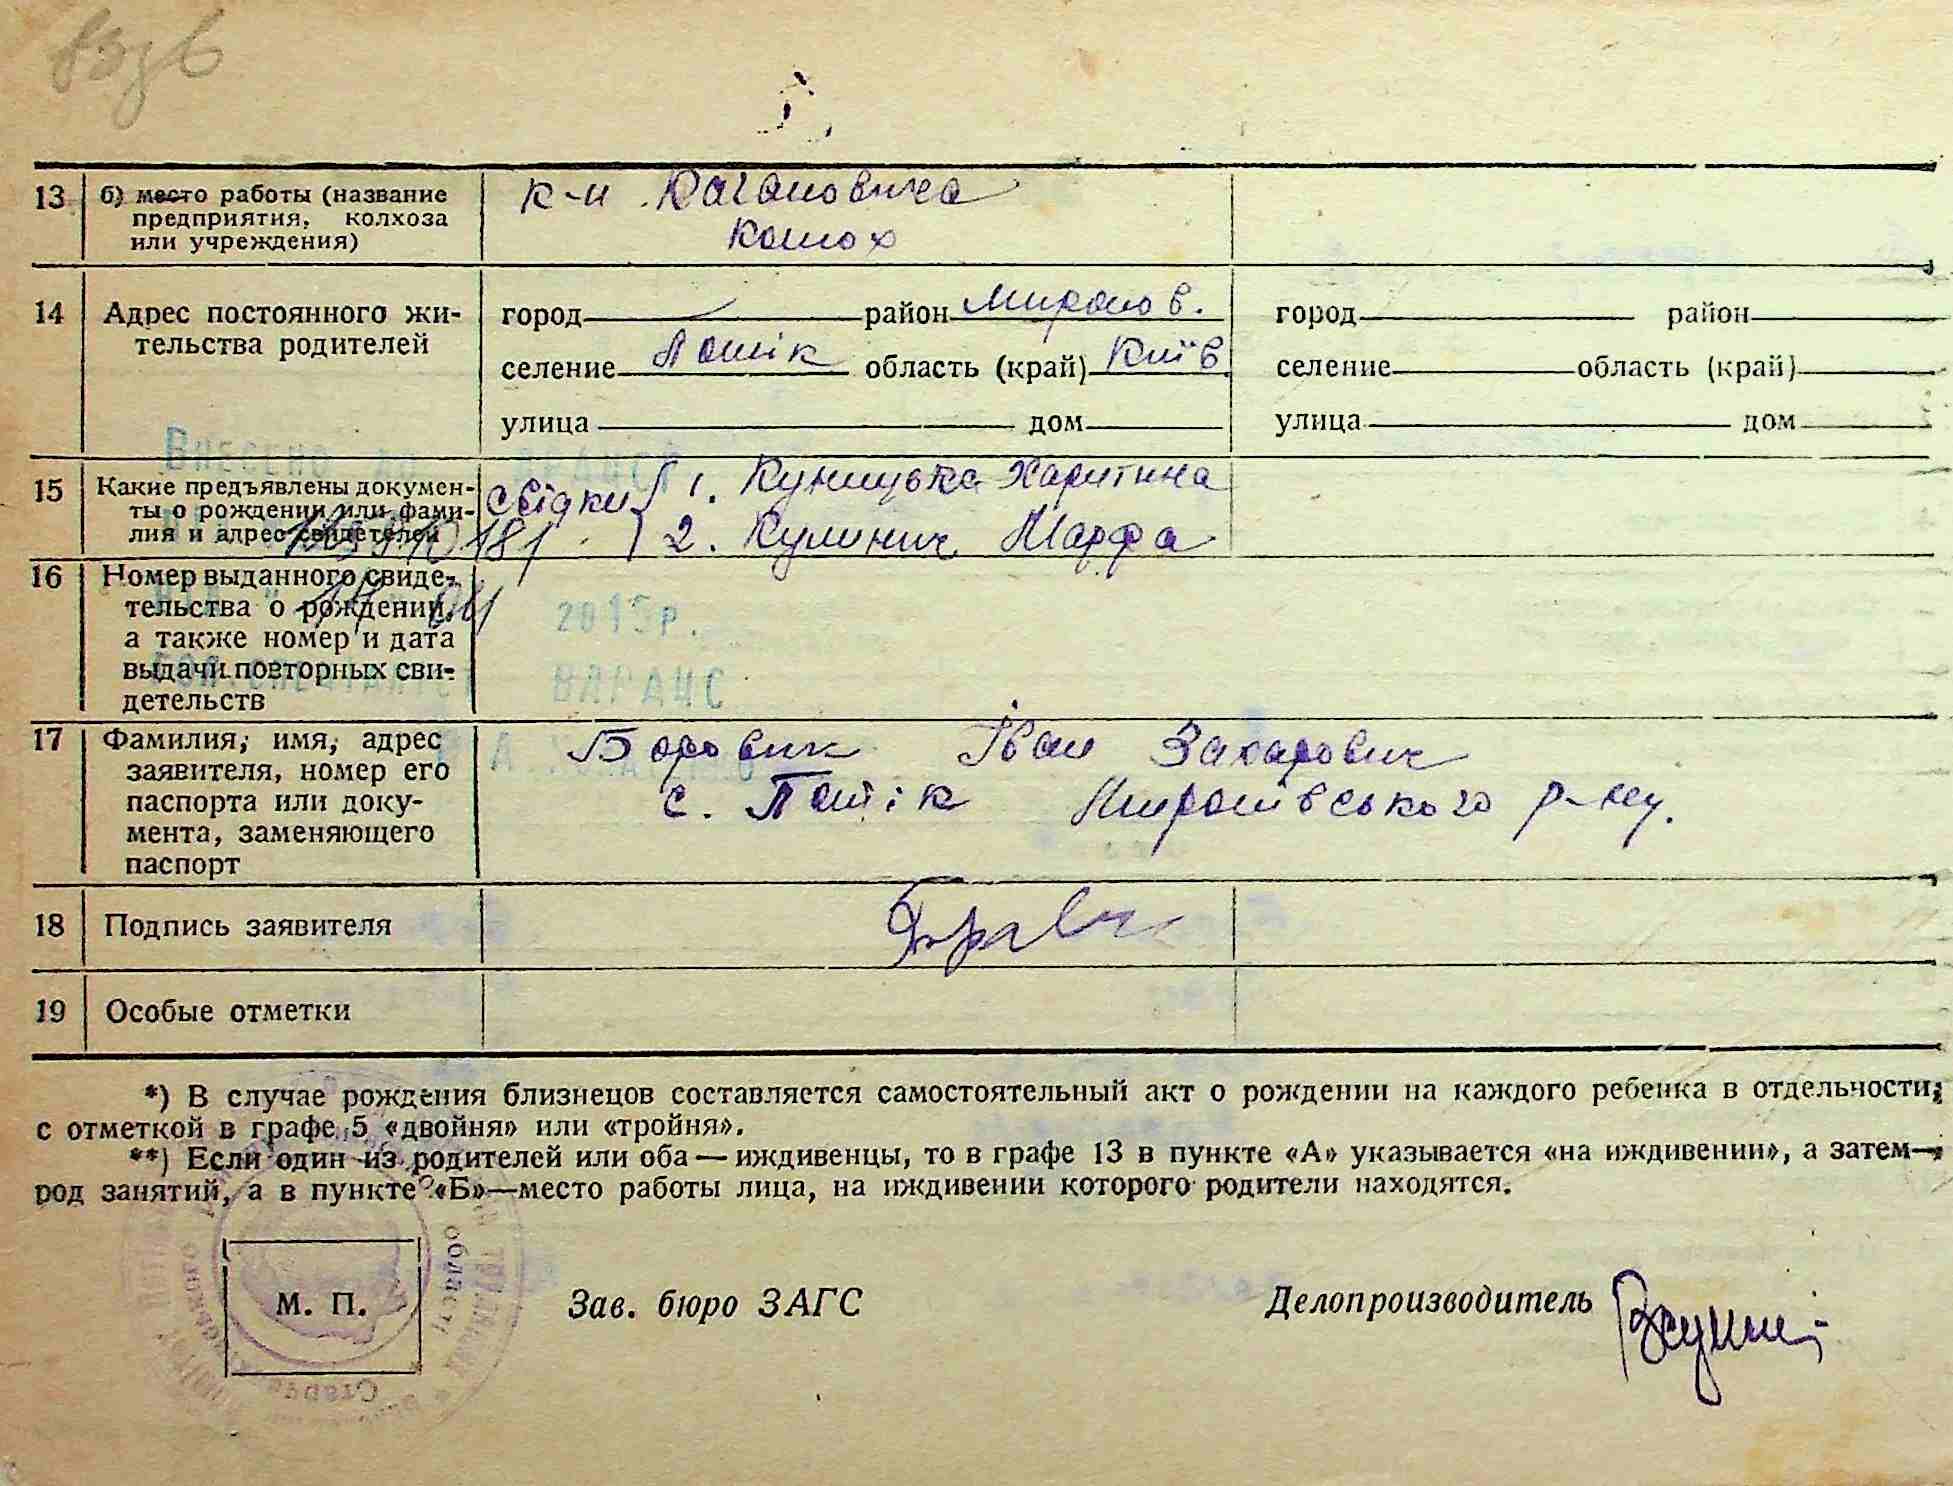 13 б) место работы (название
предприятия, колхоза
или учреждения)
к-п Кагановича
14 Адрес постоянного жи-
тельства родителей
город район Миронов.
селение Потік область (край) Київ
улица дом
город район
селение область (край)
улица дом
Внесено до ДРАЦСГ
15 Какие предъявлены докумен-
ты о рождении или фами-
лия и адрес свидетелей
свідки 1. Куницька Харитина
2. Кулинич Марфа
16 Номер выданного свиде-
тельства о рождении,
а также номер и дата
выдачи повторных сви-
детельств
2015р.
ВДРАЦС
17 Фамилия, имя, адрес
заявителя, номер его
паспорта или доку-
мента, заменяющего
паспорт
Боровик Іван Захарович
с. Потік Миронівського р-ну.
18 Подпись заявителя
19 Особые отметки
*) В случае рождения близнецов составляется самостоятельный акт о рождении на каждого ребенка в отдельности,
с отметкой в графе 5 «двойня» или «тройня».
**) Если один из родителей или оба — иждивенцы, то в графе 13 в пункте «А» указывается «на иждивении», а затем—
род занятий, а в пункте «Б»—место работы лица, на иждивении которого родители находятся.
М. П.
Зав. бюро ЗАГС
Делопроизводитель
області